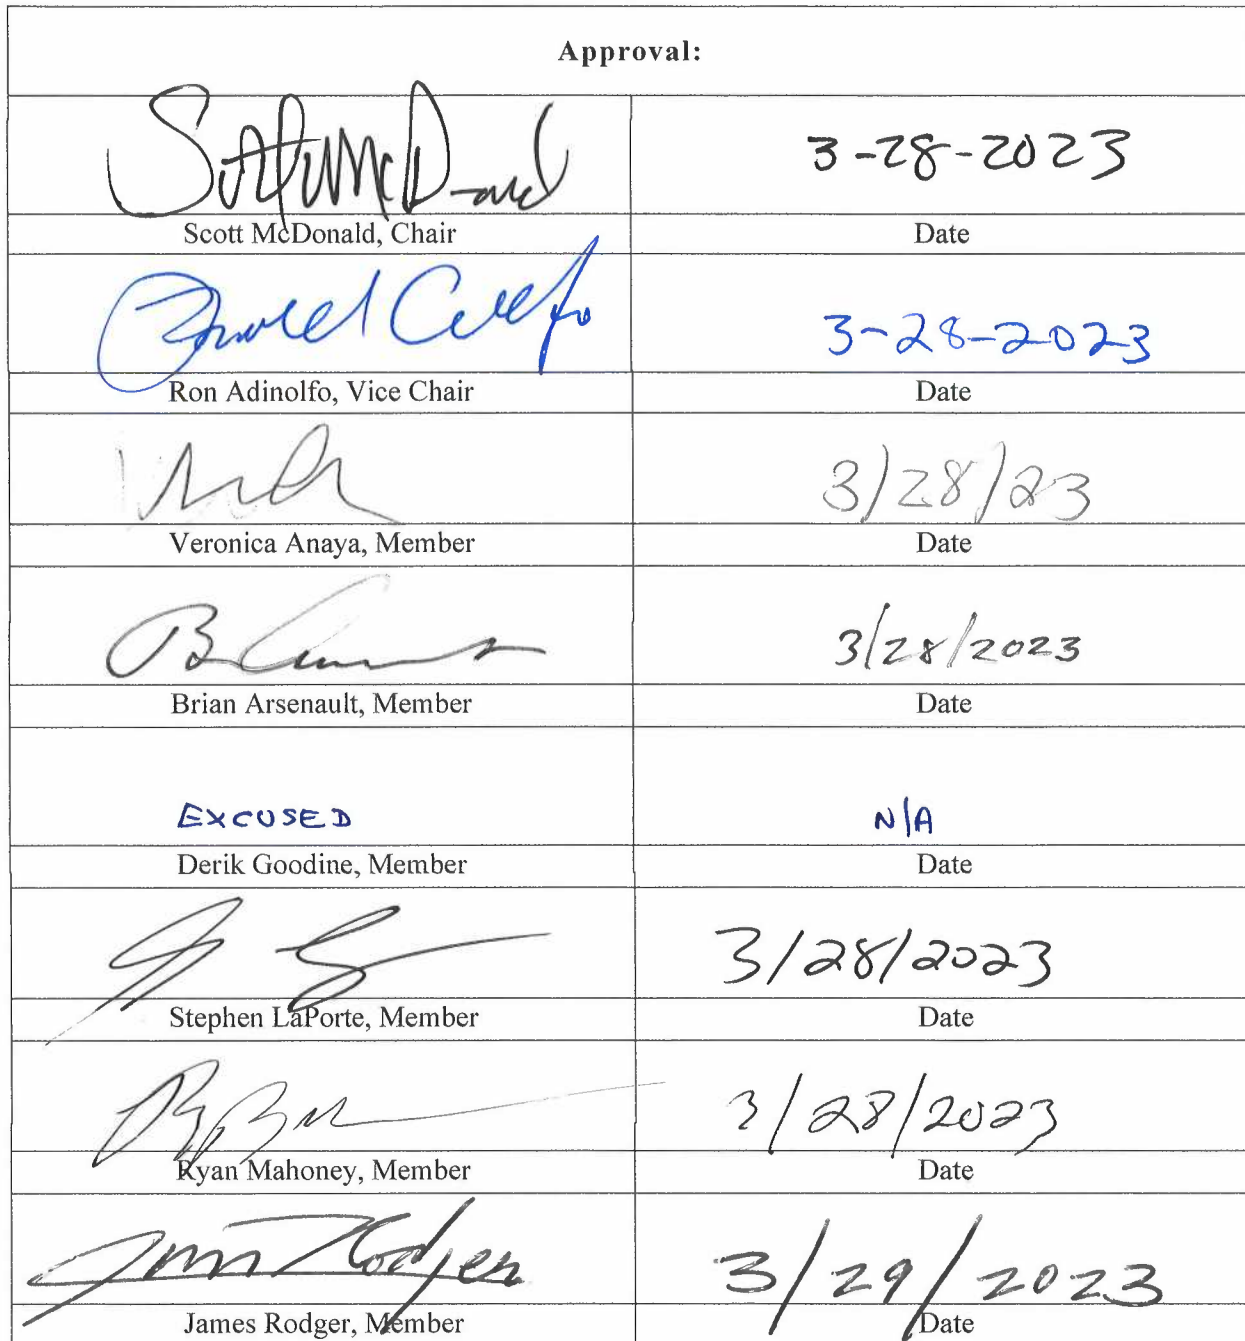 Approval:
Scott McDonald 3-28-2023
Scott McDonald, Chair Date
3-28-2023
Ron Adinolfo, Vice Chair Date
3/28/23
Veronica Anaya, Member Date
3/28/2023
Brian Arsenault, Member Date
EXCUSED N/A
Derik Goodine, Member Date
3/28/2023
Stephen LaPorte, Member Date
3/28/2023
Ryan Mahoney, Member Date
3/29/2023
James Rodger, Member Date